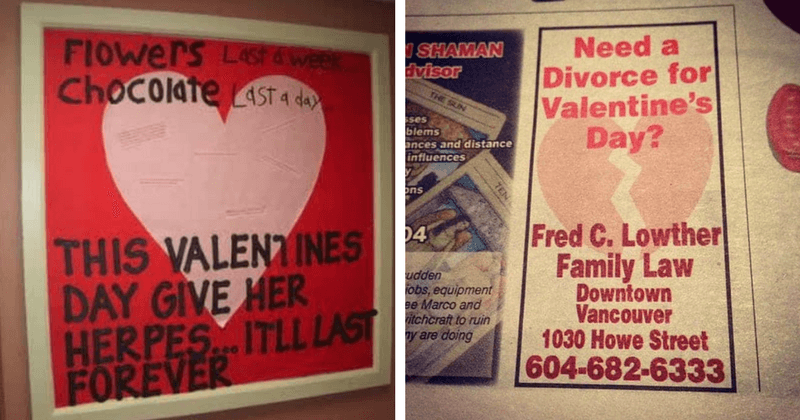 Flowers Last a week
Chocolate Last a day
THIS VALENTINES
DAY GIVE HER
HERPES... IT'LL LAST
FOREVER
SHAMAN
dvisor
THE SUN
sses
blems
ances and distance
influences
y
ons
04
udden
jobs, equipment
ee Marco and
witchcraft to ruin
ny are doing
Need a
Divorce for
Valentine's
Day?
Fred C. Lowther
Family Law
Downtown
Vancouver
1030 Howe Street
604-682-6333